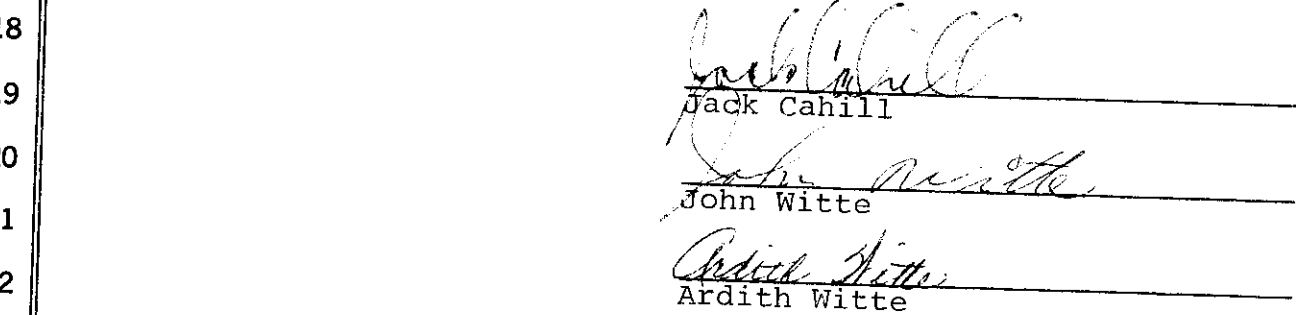 18
Jack Cahill
19
Jack Cahill
20
John Witte
John Witte
1
Ardith Witte
2
Ardith Witte